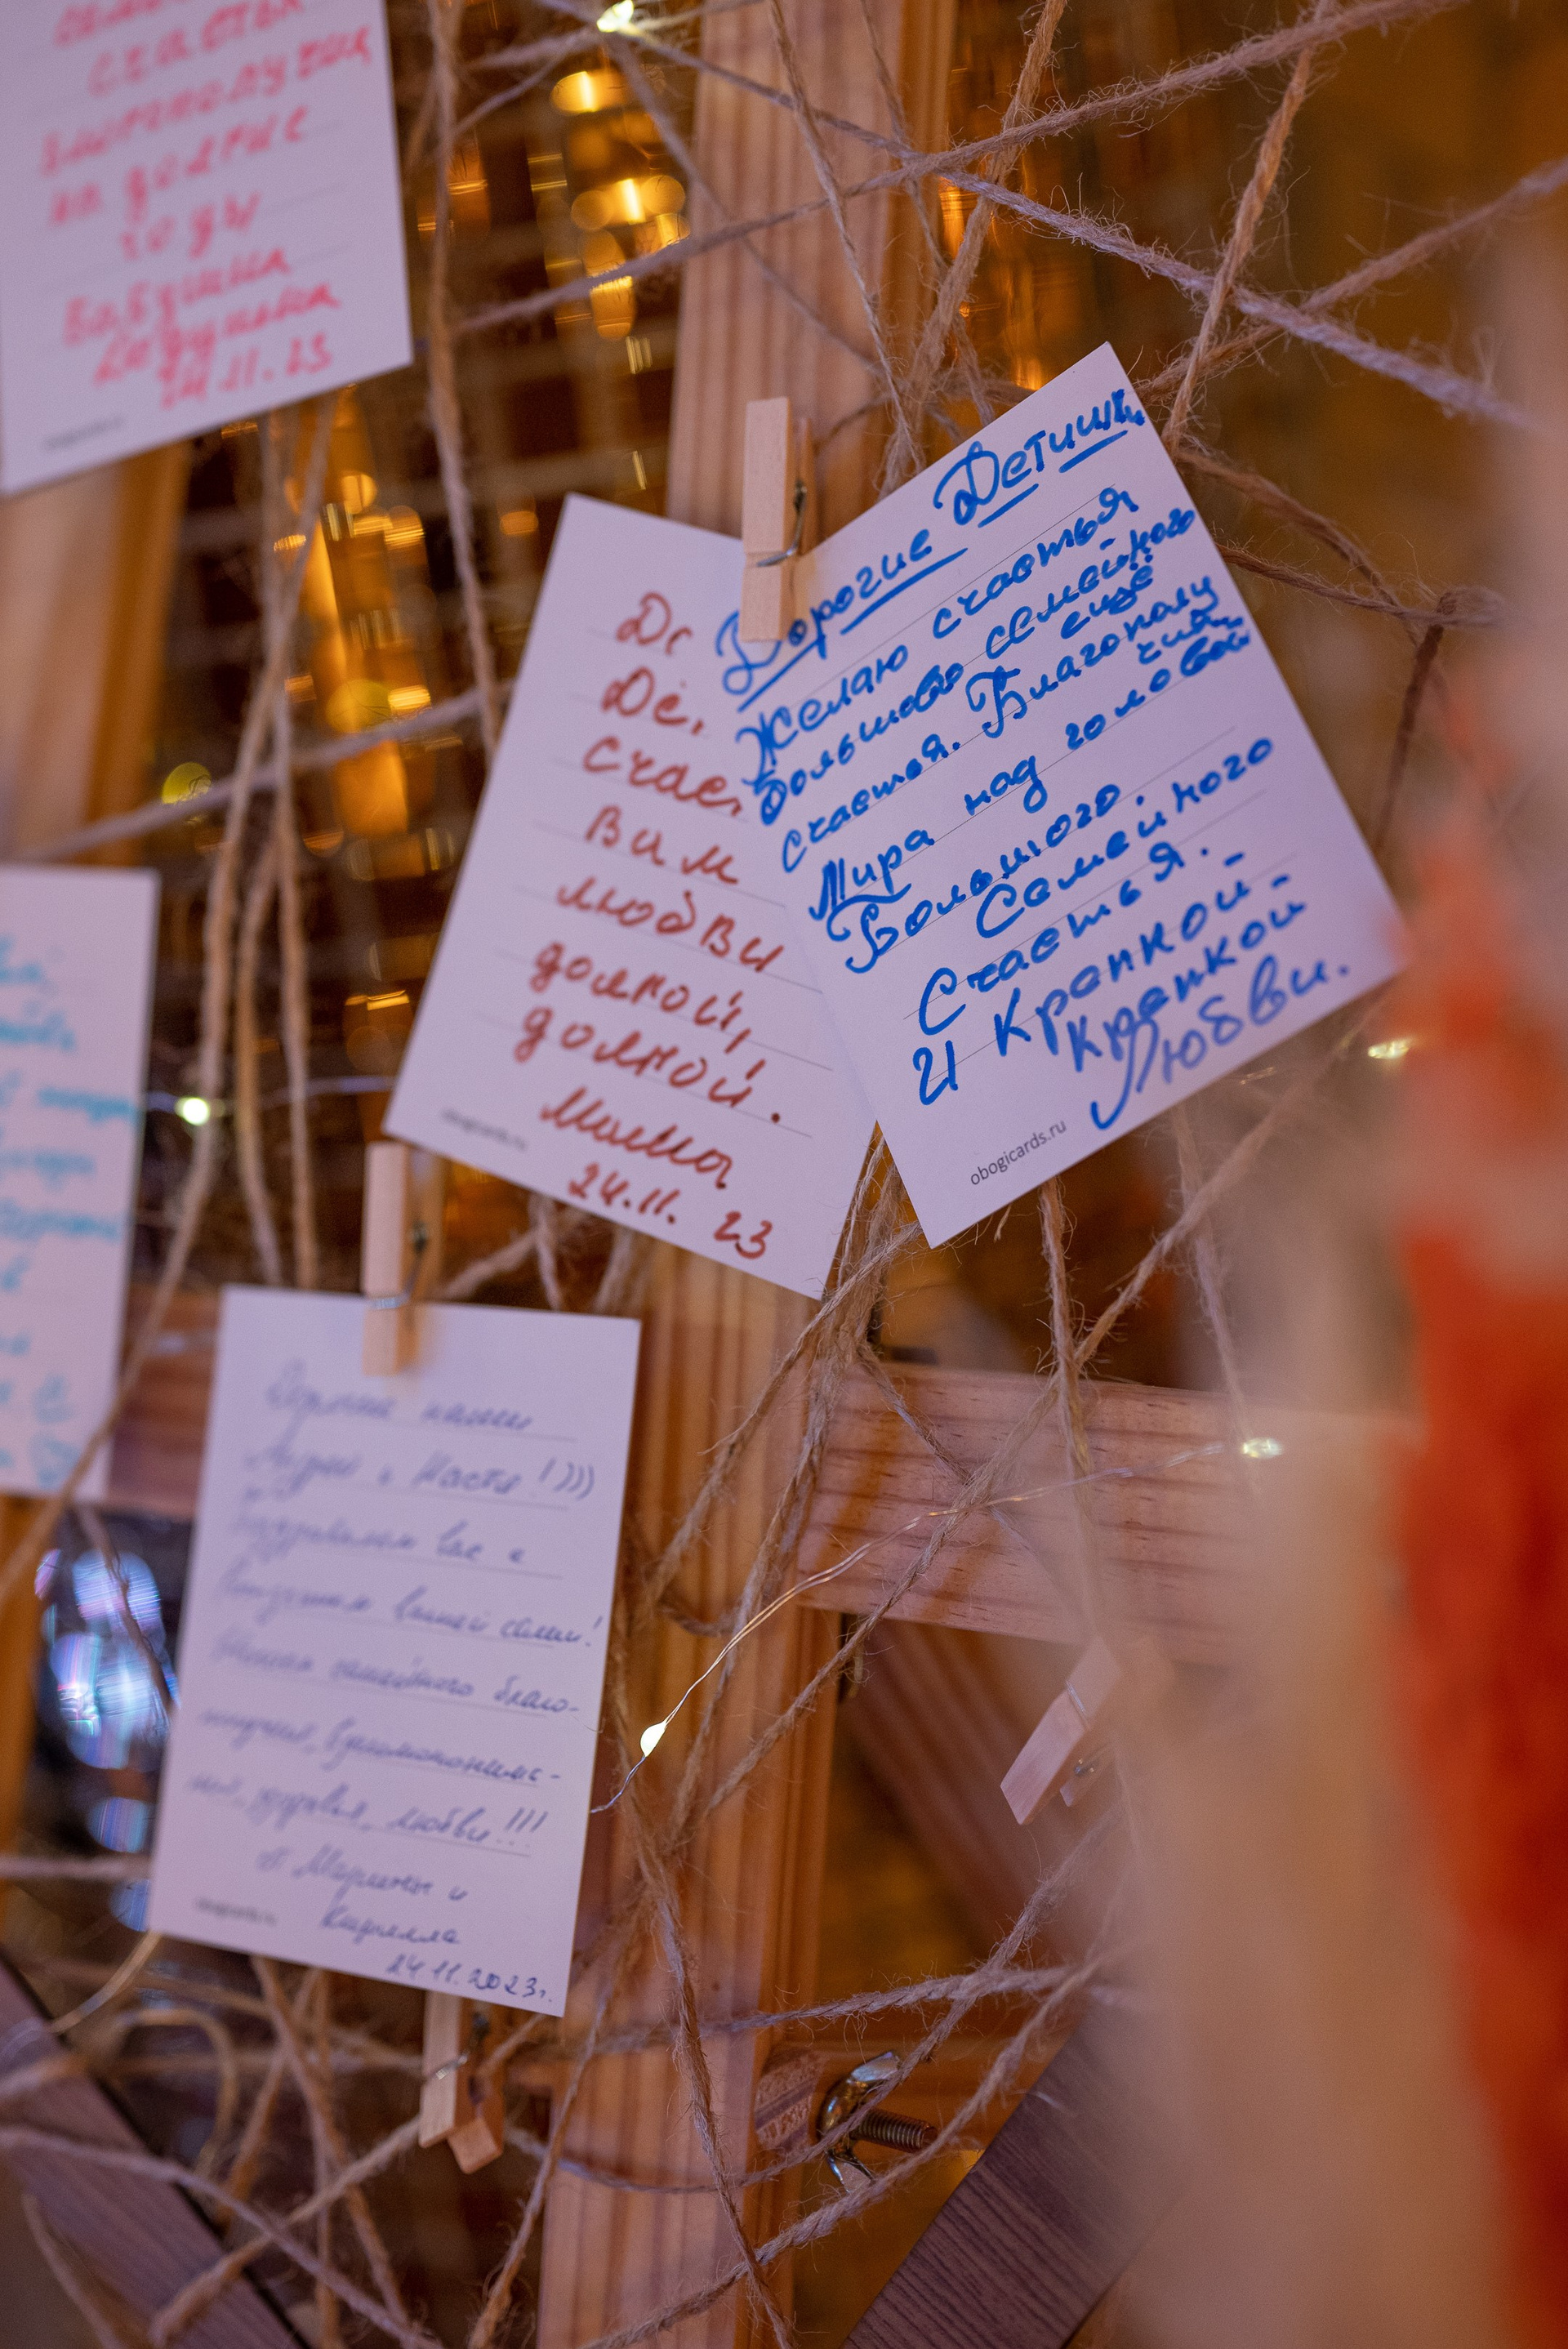 счастья
благополучия
на долгие
годы
Бабушка
Дедушка
24.11.23
Дорогие Детишки
Желаю счастья
большово семейного
ещё
счастья. Благополу
чия,
Мира над головой
Большого.
Семейного
Счастья.
И Крепкой-
крепкой-
Любви.
obogicards.ru
До
Де
Счас
Вам
любви
долгой,
долгой.
Мама
24.11. 23
obogicards.ru
Дорогие наши
и Настя!)))
Поздравляем вас с
рождением вашей семьи!
Желаем семейного благо-
получия, взаимопонима-
ния, здоровья, любви!!!
от Марины и
Кирилла
24.11.2023г.
obogicards.ru